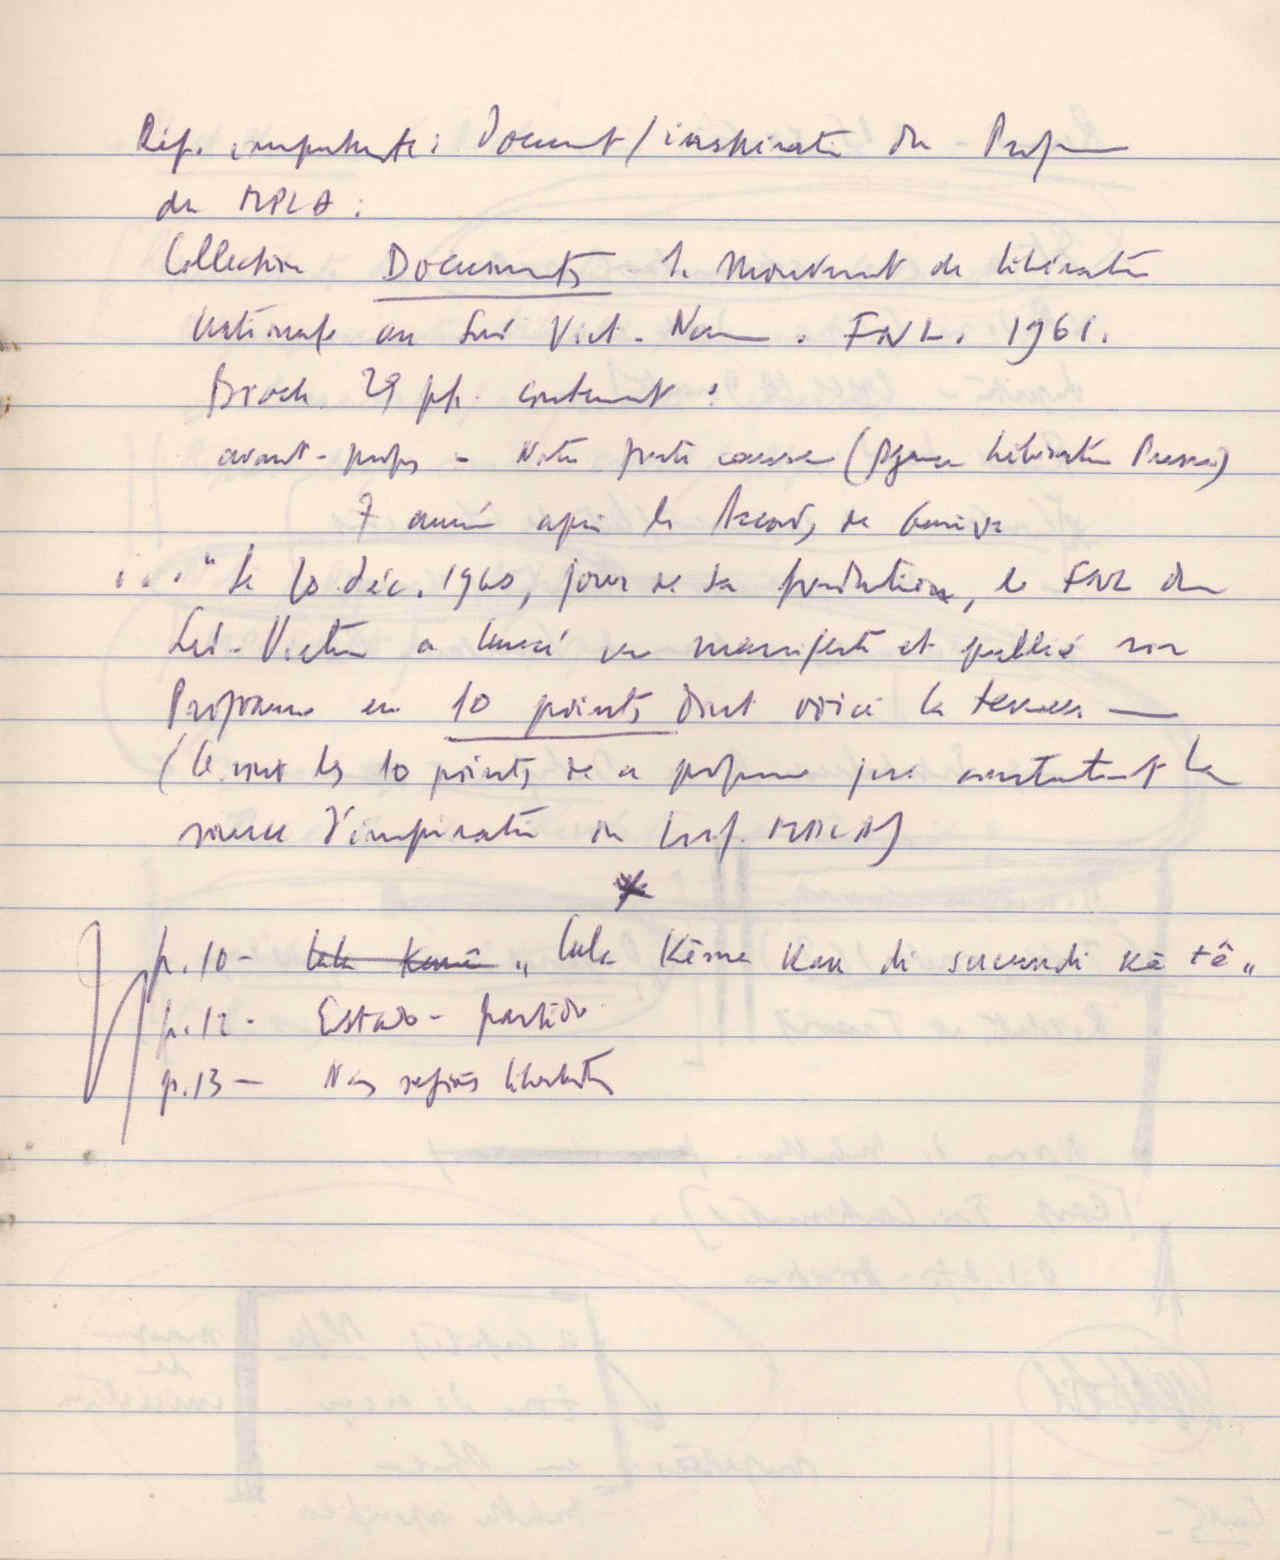 Réf. importante: Document/inspiration du Programme
du MPLA:
Collection Documents - le Mouvement de libération
nationale au Sud Viet-Nam. FNL. 1961.
Broch. 29 pp. contenant:
avant-propos - Notre juste cause (Agence Libération Presse)
7 années après les Accords de Genève
..." Le 20 déc. 1960, jour de sa fondation, le FNL du
Sud-Vietnam a lancé un manifeste et publié son
Programme en 10 points dont voici la teneur —
(Ce sont les 10 points de ce programme qui constituent la
source d'inspiration du MPLA)
p.10 - lala Kema „ lala Kêma Kau di sucundi kâ tê „
p.12 - Estado - partido
p.13 - Nas regiões libertadas